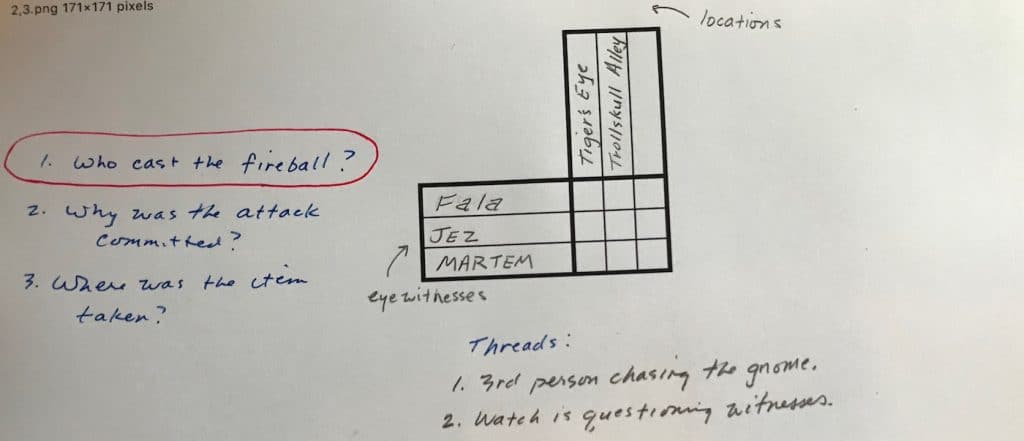 2,3.png 171×171 pixels
locations
Tiger's Eye
Trollskull Alley
1. Who cast the fireball?
2. Why was the attack
committed?
3. Where was the item
taken?
Fala
JEZ
MARTEM
eyewitnesses
Threads:
1. 3rd person chasing the gnome.
2. Watch is questioning witnesses.